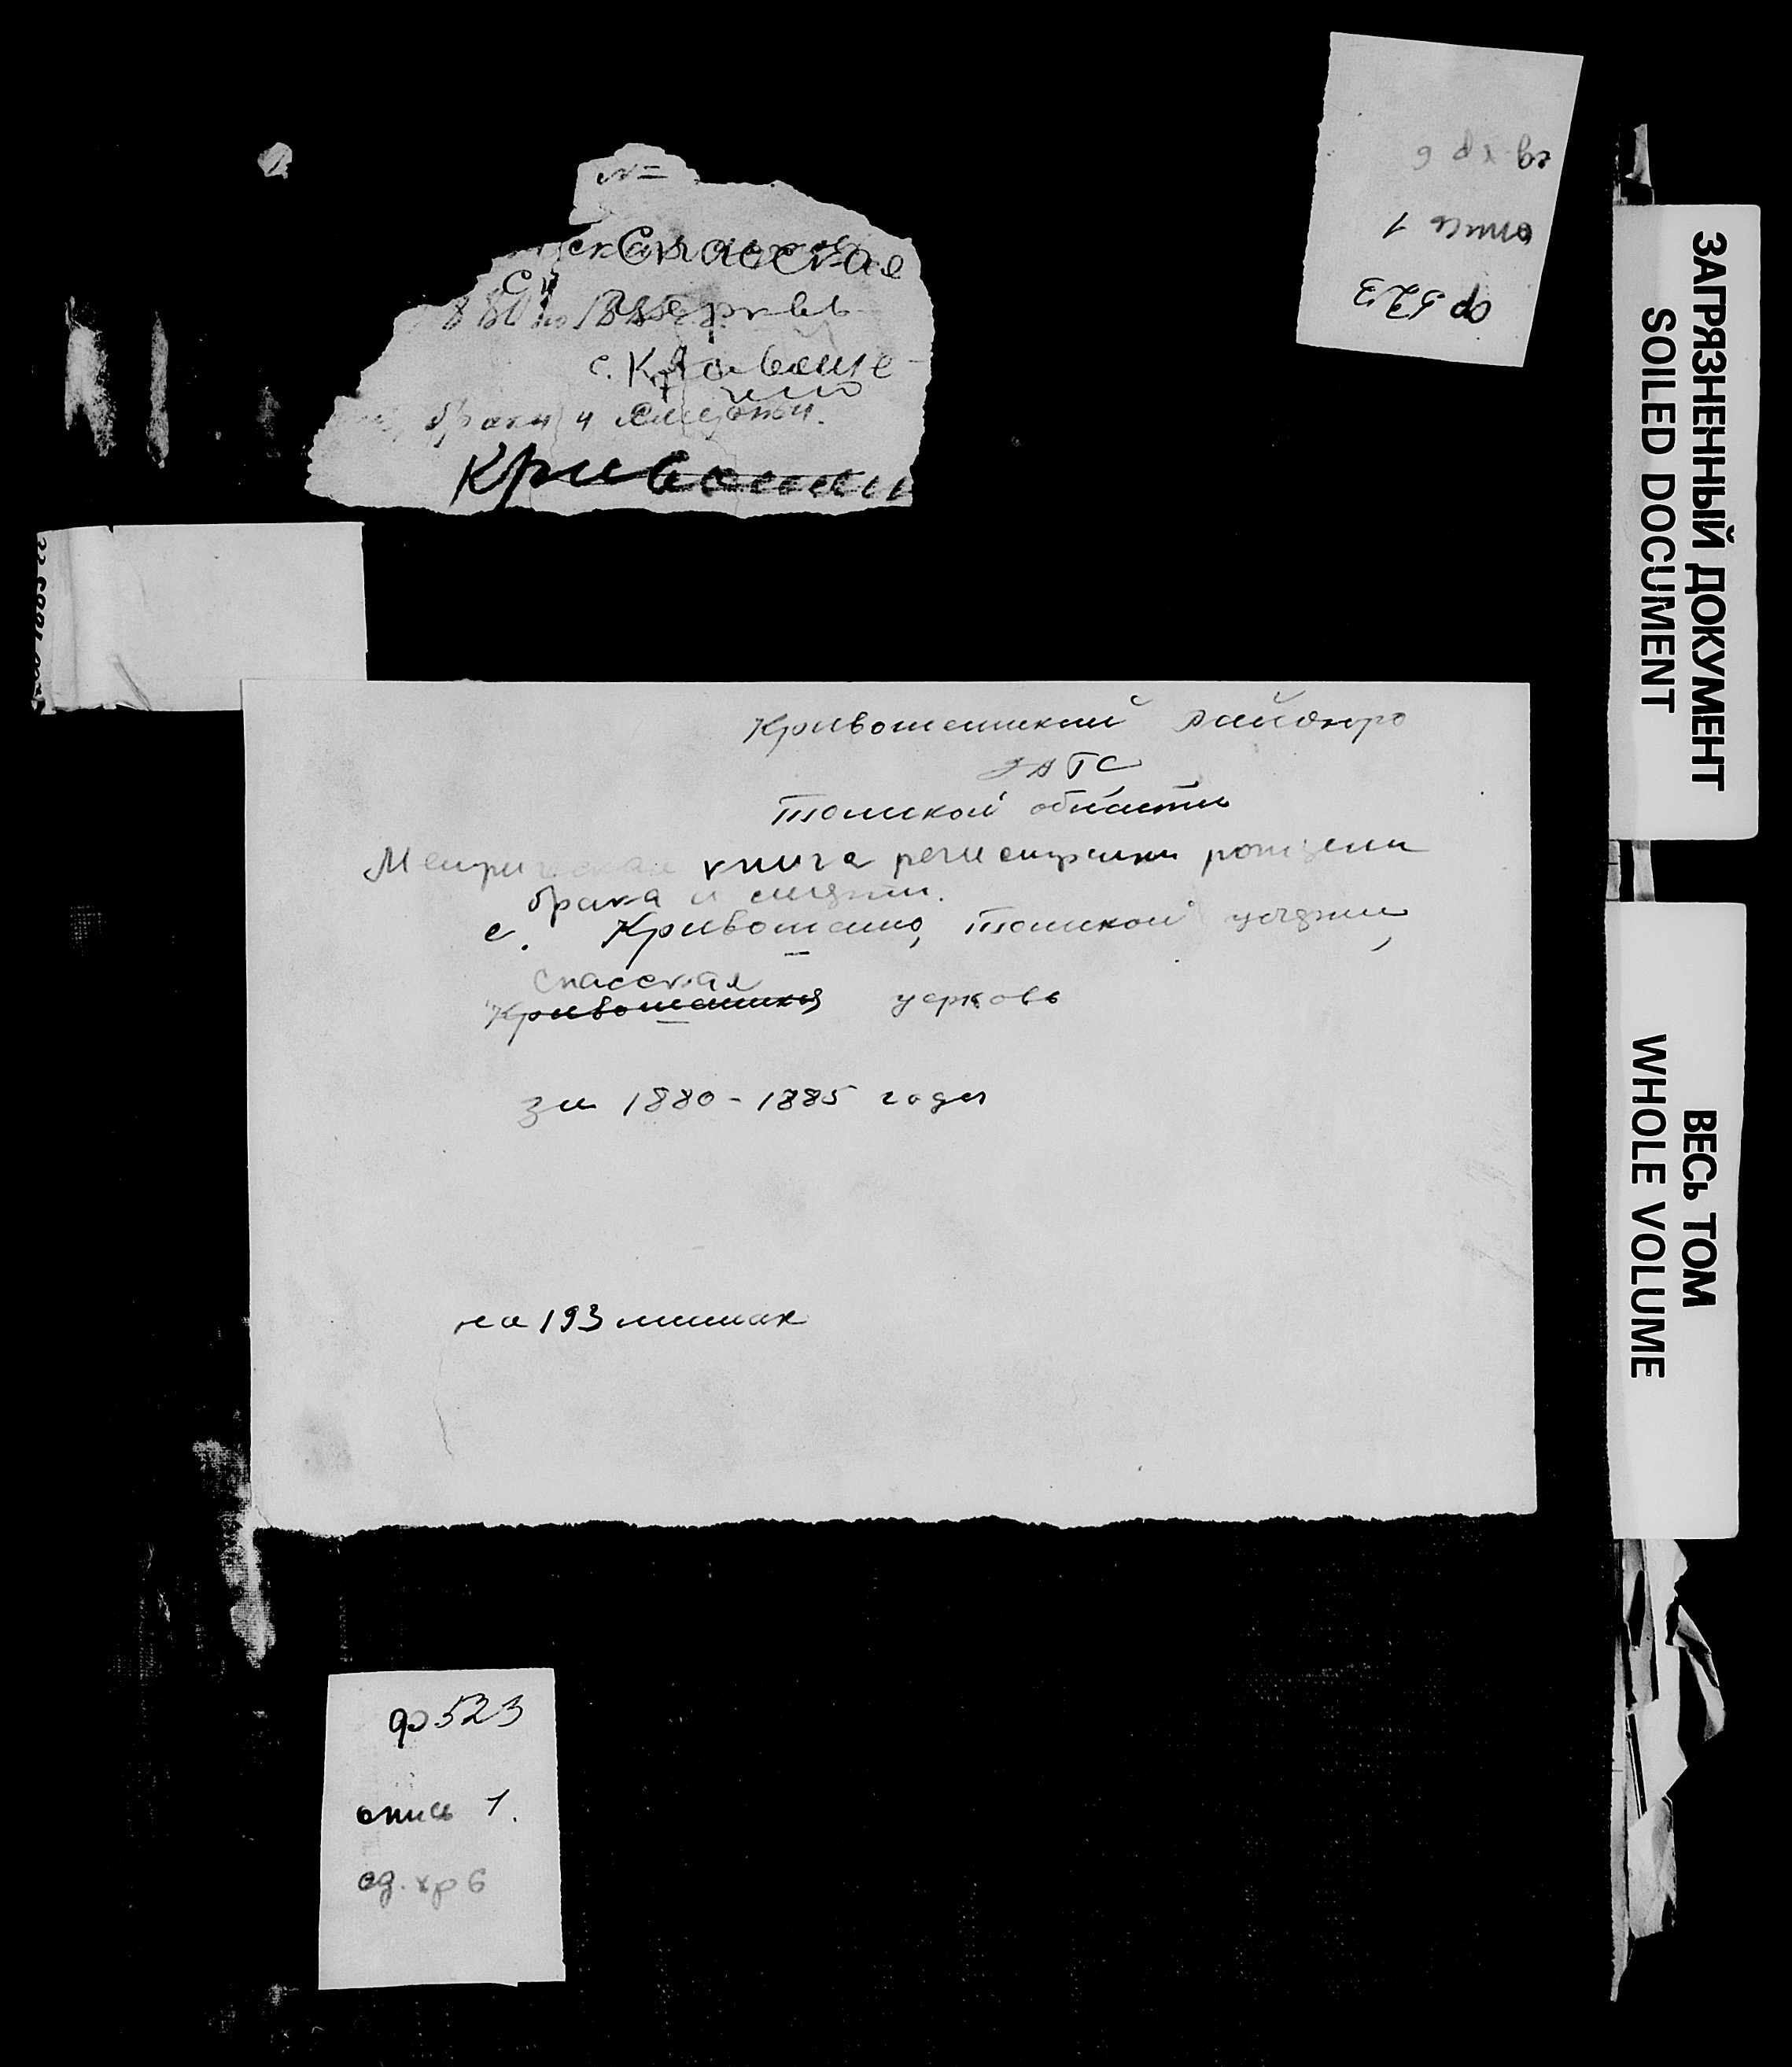 ед. хр 6
опись 1
ф 523
№
Спасская
1880 по 1885 г. церковь
с. Кривоше-
ино
браки и смерти.
Кривошеин
Кривошеинский райбюро
ЗАГС
Томской области
Метрическая книга регистрации рождения
брака и смерти.
с. Кривошеино, Томской губернии,
Спасская
Кривошеинская церковь
за 1880-1885 годы
на 193 листах
ф 523
опись 1.
ед. хр 6
ЗАГРЯЗНЕННЫЙ ДОКУМЕНТ
SOILED DOCUMENT
ВЕСЬ ТОМ
WHOLE VOLUME